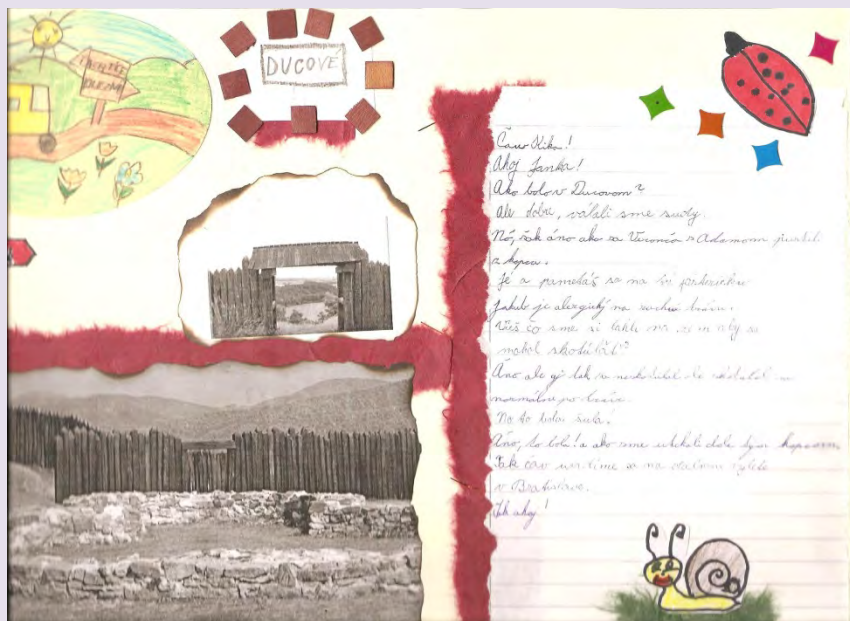 DUCOVÉ
Čau Nika!
Ahoj Janka!
Ako bolo v Ducovom?
Ale dobre, váľali sme sudy.
No, šak áno ako sa Veronča s Adamom
z kopca.
Jé a pamätáš sa na
Jakub je alergický na suchú trávu.
Vieš čo sme si ľahli na zem aby sa
mohol skotúľať?
Áno ale aj tak sa neskotúľal
normálne po tráve.
No to bola šula!
Áno, to bola! a ako sme utekali dole tým kopcom.
Tak čav uvidíme sa na ďalšom výlete
v Bratislave.
Tak ahoj!